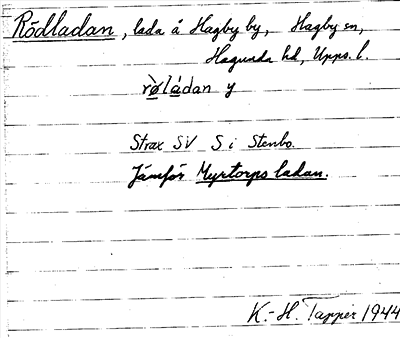 Rödladan, lada å Hagby by, Hagby sn,
Hagunda hd, Upps. l.
rö̀ládan y
Strax SV S i Stenbo.
Jämför Myrtorps ladan.
K.-H. Tapper 1944